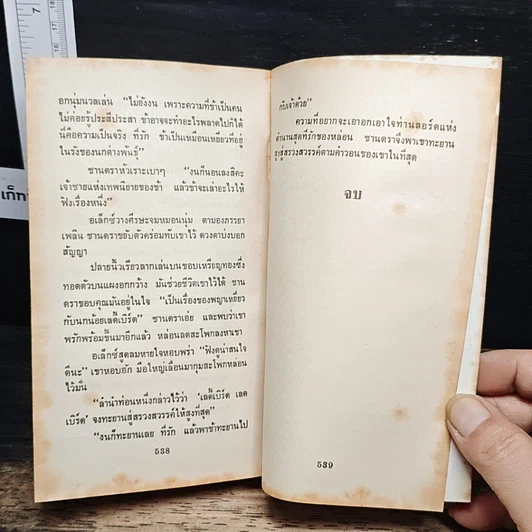 7
18
17
เก็ก
อกนุ่มนวลเล่น "ไม่ยังงน เพราะความที่ข้าเป็นคน
ไม่ค่อยรู้ประสีประสา ข้าอาจจะทำอะไรพลาดไปก็ได้
นี่คือความเป็นจริง ที่รัก ข้าเป็นเหมือนเหยี่ยวที่อยู่
ในรังของนกต่างพันธุ์"
ซานดราหัวเราะเบาๆ "งั้นก็นอนลงสิคะ
เจ้าชายแห่งเทพนิยายของข้า แล้วข้าจะเล่าอะไรให้
ฟังเรื่องหนึ่ง"
อเล็กซ์วางศีรษะจมหมอนนุ่ม ตามองภรรยา
เพลิน ซานดราขยับตัวคร่อมทับเขาไว้ ดวงตาบ่งบอก
สัญญา
ปลายนิ้วเรียวลากเล่นบนขอบเหรียญทองซึ่ง
ทอดตัวบนแผงอกกว้าง มันช่วยชีวิตเขาไว้ได้ ซาน
ดราขอบคุณมันอยู่ในใจ "เป็นเรื่องของพญาเหยี่ยว
กับนกน้อยเลดี้เบิร์ด" ซานดราเอ่ย และพบว่าเขา
พรักพร้อมขึ้นมาอีกแล้ว หล่อนลดสะโพกลงหาเขา
อเล็กซ์สูดลมหายใจหอบพร่า "ฟังดูน่าสนใจ
ดีนะ" เขาหอบอีก มือใหญ่เลื่อนมากุมสะโพกหล่อน
ไว้มั่น
"ลำนำท่อนหนึ่งกล่าวไว้ว่า 'เลดี้เบิร์ด เลด
เบิร์ด' จงทะยานสู่สรวงสวรรค์ให้สูงที่สุด"
"งั้นก็ทะยานเลย ที่รัก แล้วพาข้าทะยานไป
538
กับเจ้าด้วย"
ความที่อยากจะเอาอกเอาใจท่านลอร์ดแห่ง
ตำนานสุดที่รักของหล่อน ซานดราจึงพาเขาทะยาน
สู่สรวงสวรรค์ตามคำวอนของเขาในที่สุด
จบ
539